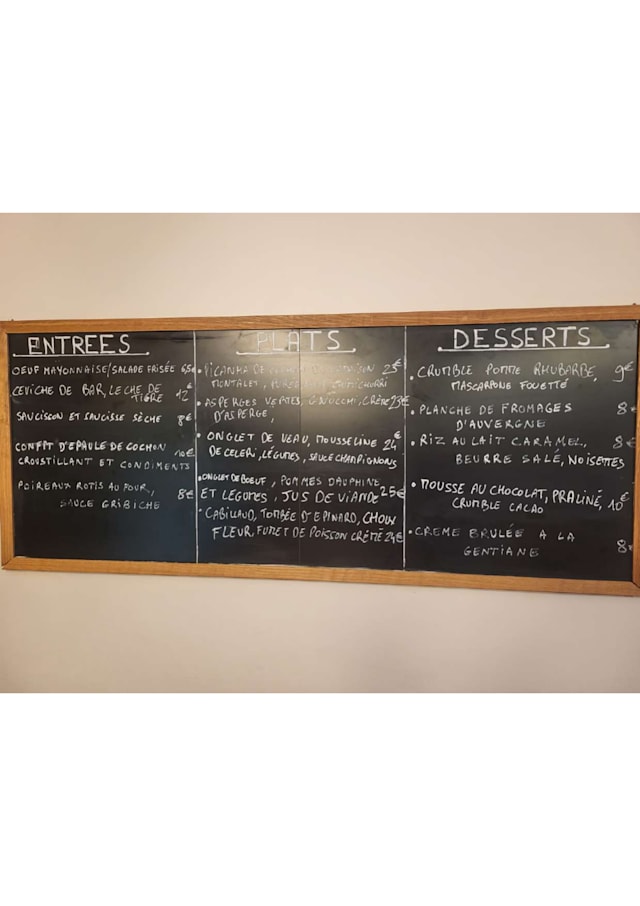 ENTREES
OEUF MAYONNAISE/SALADE FRISÉE 6,5€
CEVICHE DE BAR, LECHE DE
TIGRE 12€
SAUCISSON ET SAUCISSE SÈCHE 8€
CONFIT D'EPAULE DE COCHON 10€
CROUSTILLANT ET CONDIMENTS
POIREAUX ROTIS AU FOUR, 8€
SAUCE GRIBICHE
PLATS
• PICANHA DE COCHON 25€
MONTALET, PURÉE CHIMICHURRI
• ASPERGES VERTES, GNOCCHI, CRÈME 23€
D'ASPERGE,
• ONGLET DE VEAU, MOUSSELINE 24€
DE CELERI, LÉGUMES, SAUCE CHAMPIGNONS
• ONGLET DE BOEUF, POMMES DAUPHINE
ET LEGUMES, JUS DE VIANDE 25€
• CABILLAUD, TOMBÉE D'EPINARD, CHOUX
FLEUR, FUMET DE POISSON CRÉMÉ 24€
DESSERTS
• CRUMBLE POMME RHUBARBE, 9€
MASCARPONE FOUETTÉ
• PLANCHE DE FROMAGES 8€
D'AUVERGNE
• RIZ AU LAIT CARAMEL, 8€
BEURRE SALÉ, NOISETTES
• MOUSSE AU CHOCOLAT, PRALINÉ, 10€
CRUMBLE CACAO
• CREME BRULÉE A LA
GENTIANE 8€